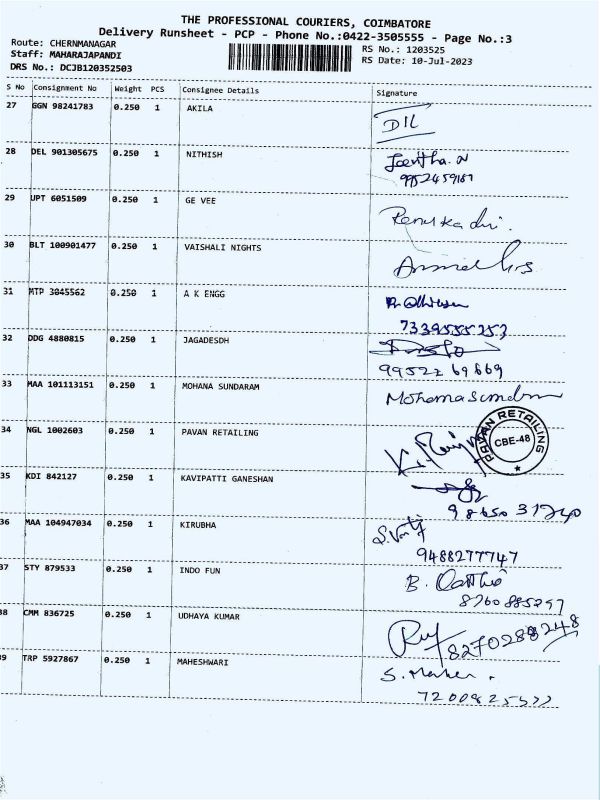 THE PROFESSIONAL COURIERS, COIMBATORE
Delivery Runsheet - PCP - Phone No.:0422-3505555 - Page No.:3
Route: CHERNMANAGAR RS No.: 1203525
Staff: MAHARAJAPANDI RS Date: 10-Jul-2023
DRS No.: DCJB120352503
S No Consignment No Weight PCS Consignee Details Signature
27 GGN 98241783 0.250 1 AKILA
DIL
28 DEL 901305675 0.250 1 NITHISH
29 UPT 6051509 0.250 1 GE VEE
30 BLT 100901477 0.250 1 VAISHALI NIGHTS
31 MTP 3045562 0.250 1 A K ENGG
32 DDG 4880815 0.250 1 JAGADESDH
33 MAA 101113151 0.250 1 MOHANA SUNDARAM
34 NGL 1002603 0.250 1 PAVAN RETAILING
PAVAN RETAILING
CBE-48
35 KDI 842127 0.250 1 KAVIPATTI GANESHAN
98650 31240
36 MAA 104947034 0.250 1 KIRUBHA
9488277747
37 STY 879533 0.250 1 INDO FUN
38 CMM 836725 0.250 1 UDHAYA KUMAR
39 TRP 5927867 0.250 1 MAHESHWARI